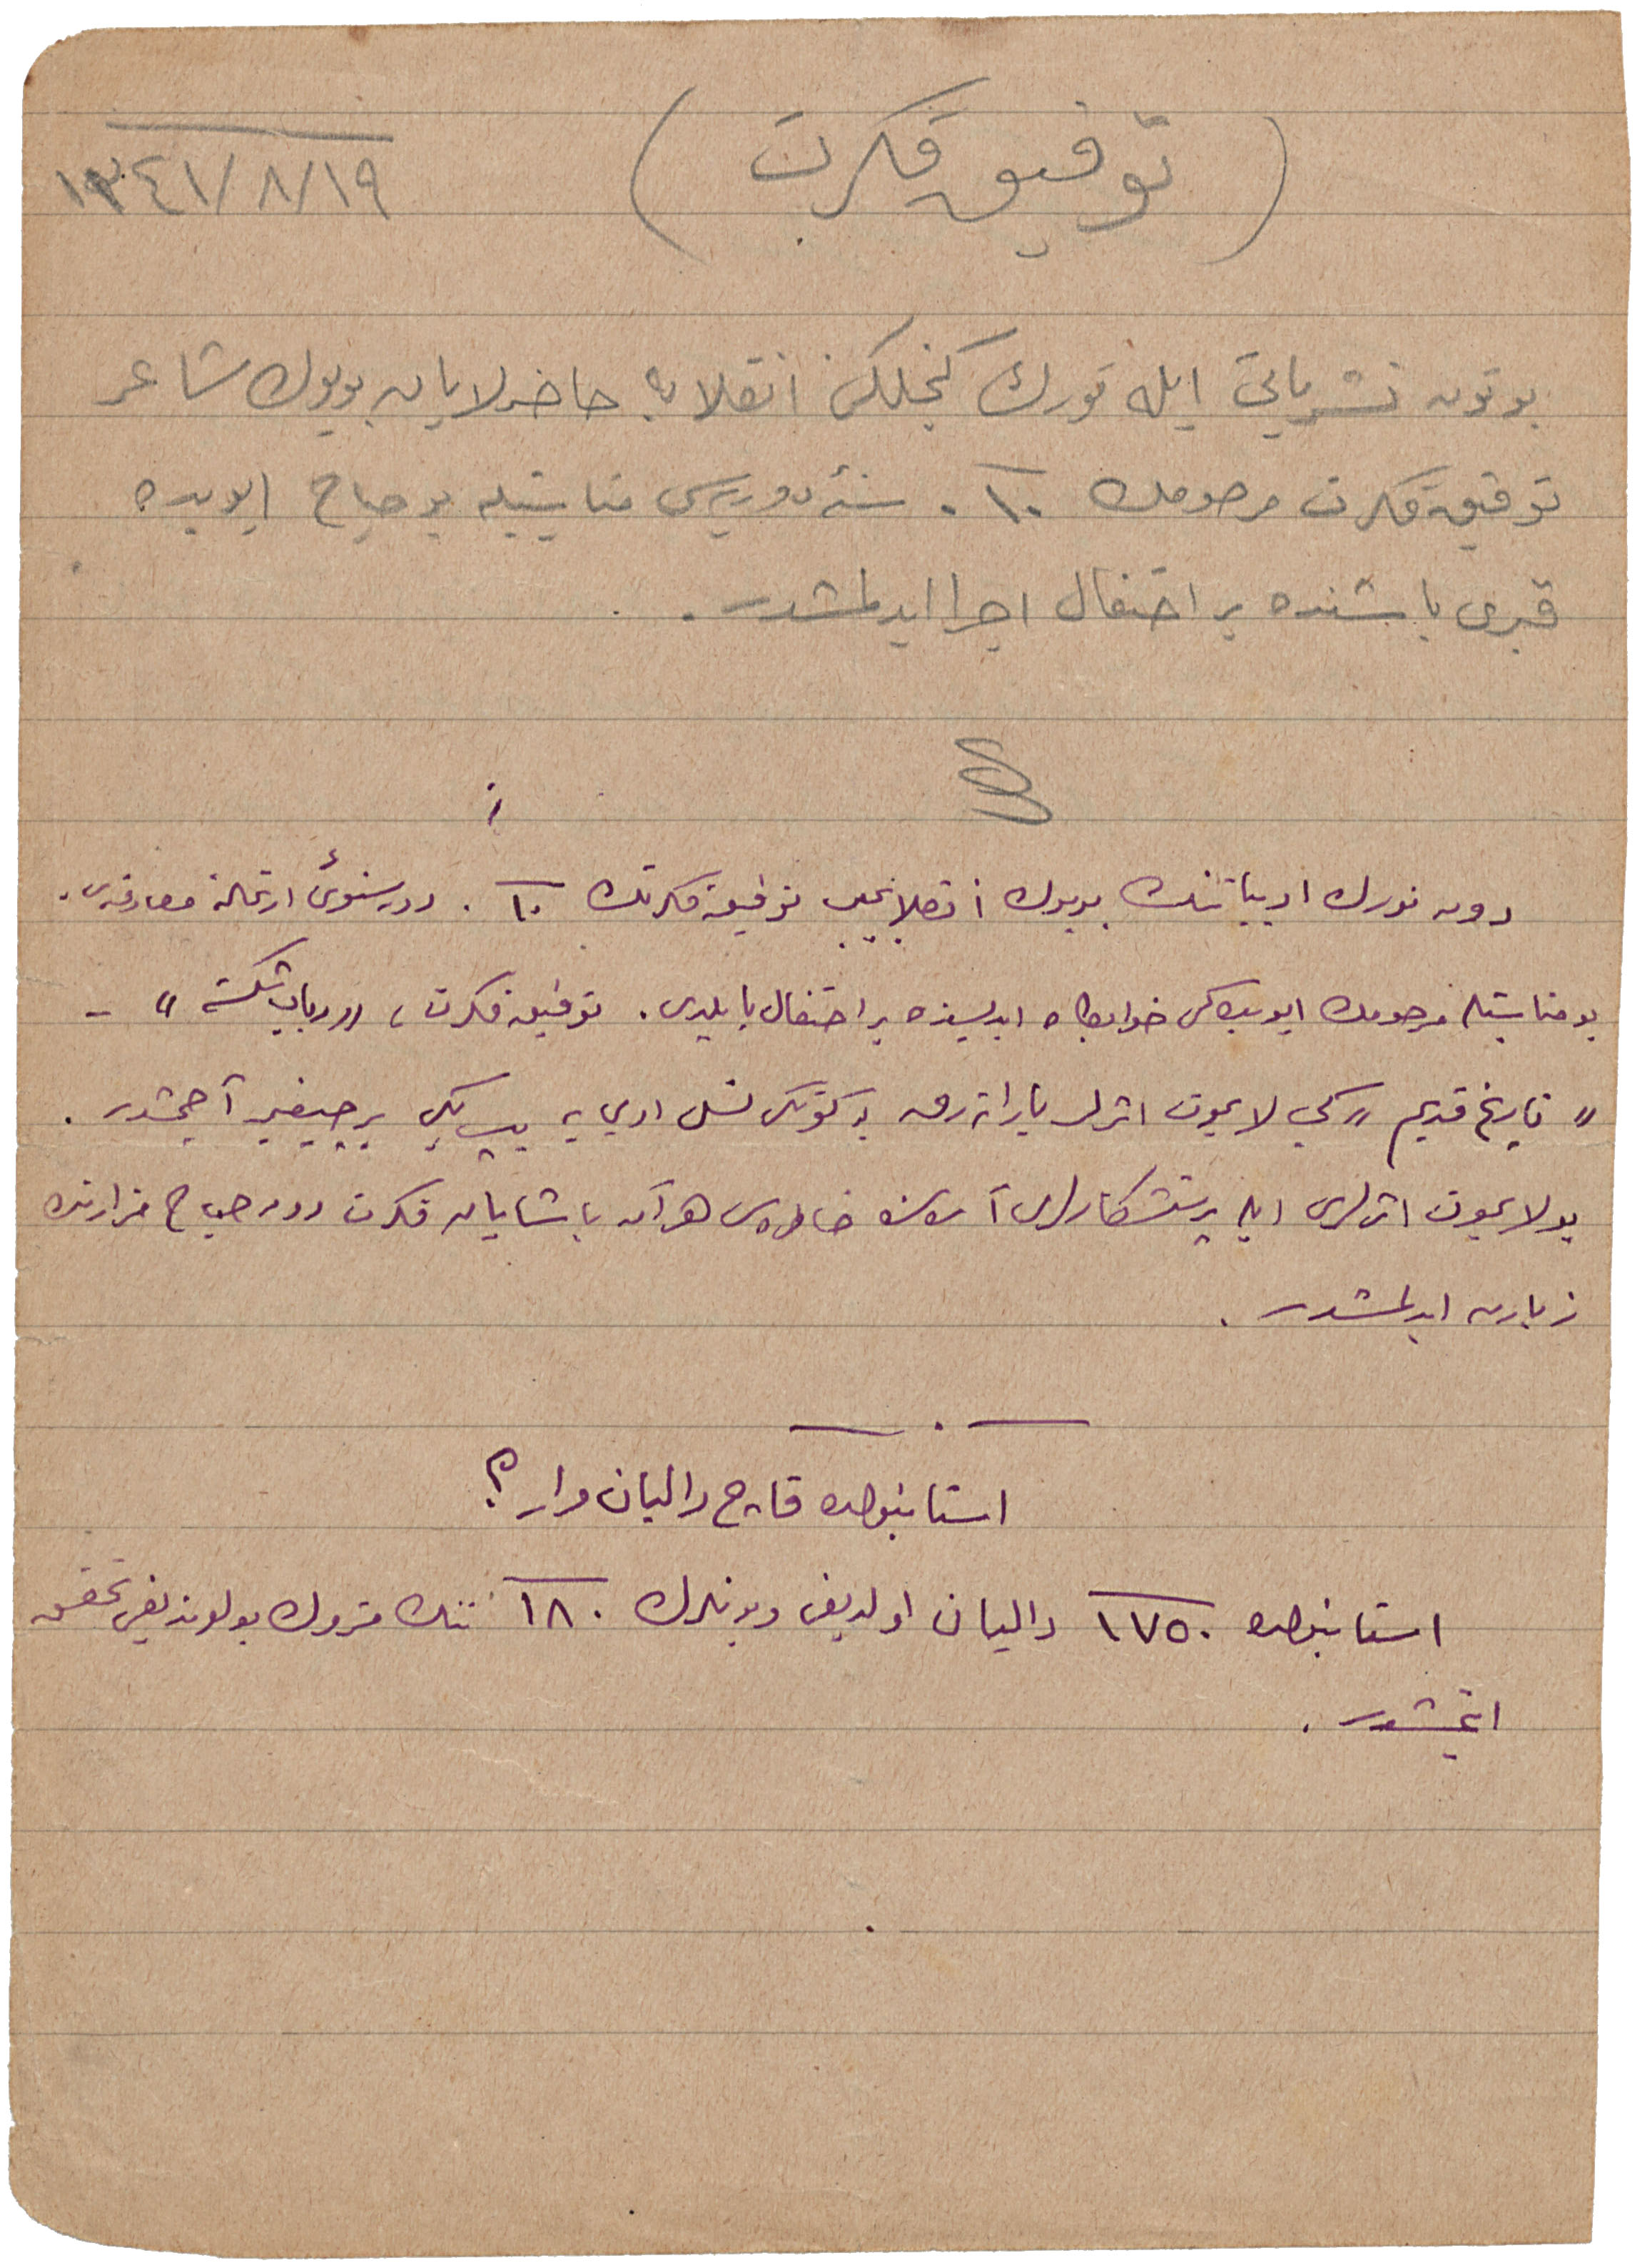 ( توفیق فکرت ) ١٣٤١/٨/١٩
بوتون نشریاتی ایله تورك کنجلکنی انقلابه حاضرلایان بویوك شاعر
توفیق فکرت مرحومك ١٠. سنۀ دوریه‌سی مناسبتیله بو صباح ایوبده
قبری باشنده بر احتفال اجرا ایدلمشدر.
دون تورك ادبیاتنك بویوك انقلابجیسی توفیق فکرتك ١٠. دور سنوئ ارتحالنه مصادفدی.
بو مناسبتله مرحومك ایوبده‌کی خوابگاه ابدیسنده بر احتفال یاپلدی. توفیق فکرت، «رباب شکسته» -
«تاریخ قدیم» کبی لایموت اثرلر یاراتەرق بوکونکی نسل ادبی یه یپ یکی بر چیغیر آچمشدر.
بو لایموت اثرلری ایله پرستشکارلری آراسنده خاطره‌سی هر آن یاشایان فکرت دون صباح مزارنده
زیارت ایدلمشدر.
استانبولده قاچ دالیان وار؟
استانبولده ١٧٥٠ دالیان اولدیغی وبونلرك ١٨٠ نك متروك بولوندیغی تحقق
ایتمشدر.